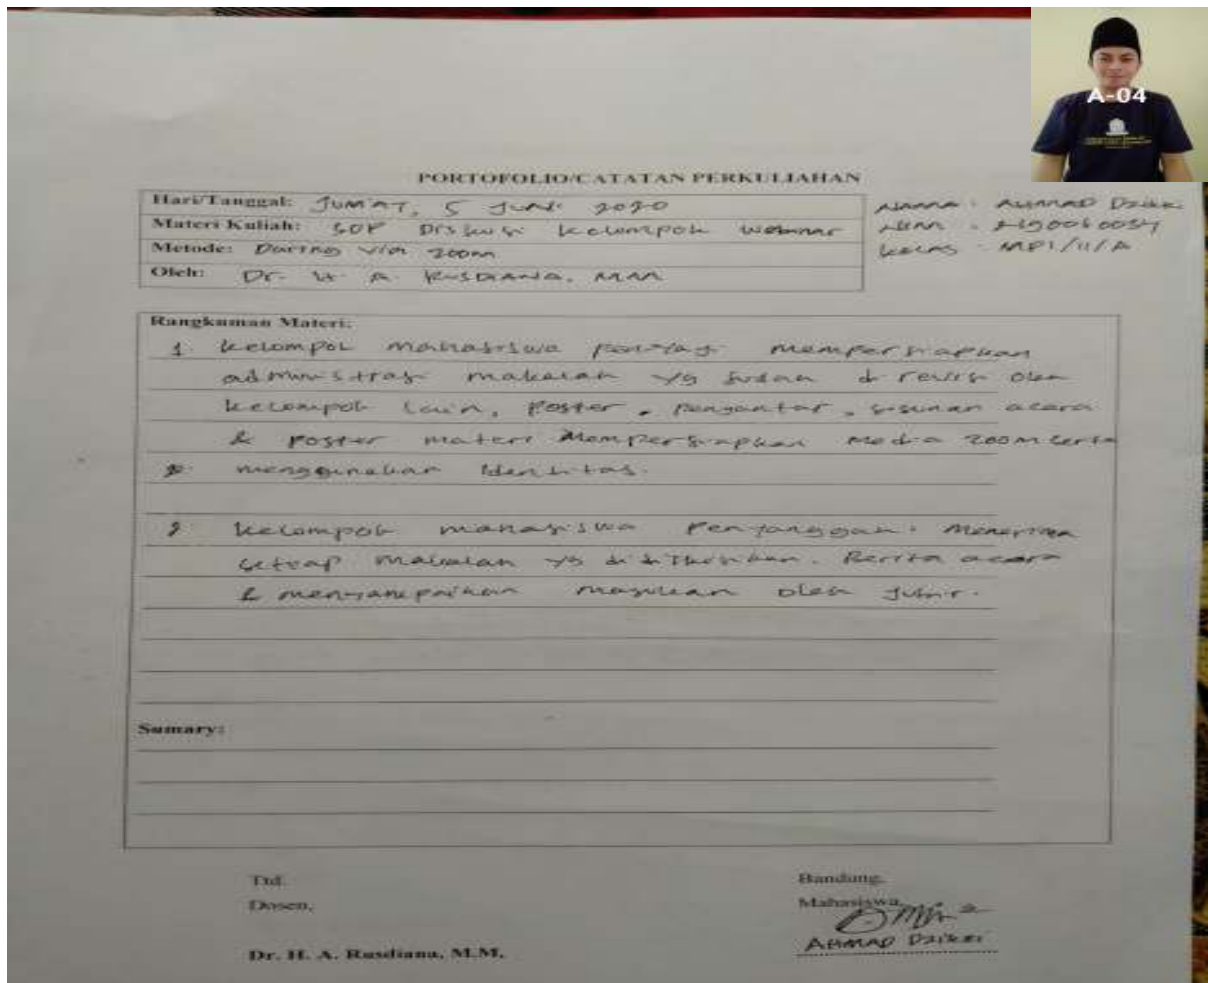 A-04
PORTOFOLIO/CATATAN PERKULIAHAN
Hari/Tanggal: JUM'AT, 5 JUNI 2020
Materi Kuliah: SOP Diskusi kelompok Webinar
Metode: Daring via zoom
Oleh: Dr. H. A. RUSDIANA, MM
NAMA : AHMAD Dzikri
NIM :
kelas : MPI/II/A
Rangkuman Materi:
1. kelompok mahasiswa penyaji mempersiapkan
administrasi makalah yg sudah di revisi oleh
kelompok lain, Poster, Pengantar, susunan acara
& poster materi Mempersiapkan media zoom serta
menggunakan Identitas.
2 kelompok mahasiswa Penyanggah: Menerima
setiap makalah yg. Berita acara
& menyampaikan masukan oleh Jubir.
Sumary:
Ttd.
Dosen,
Dr. H. A. Rusdiana, M.M,
Bandung,
Mahasiswa
AHMAD Dzikri